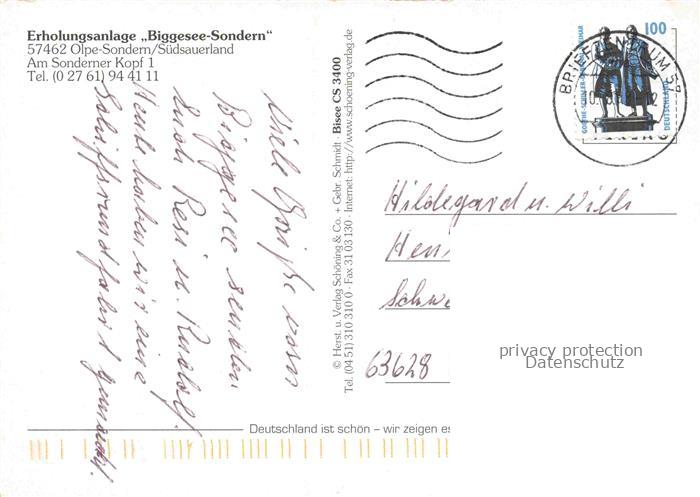 Erholungsanlage „Biggesee-Sondern"
57462 Olpe-Sondern/Südsauerland
Am Sonderner Kopf 1
Tel. (0 27 61) 94 41 11
Viele Grüße vom
Biggesee senden
Euch Resi u. Rudolf.
Heute haben wir eine
Schiffrundfahrt gemacht.
© Herst. u. Verlag Schöning & Co. + Gebr. Schmidt · Bisee CS 3400
Tel. (04 51) 310 310 0 · Fax 31 03 130 · Internet: http://www.schoening-verlag.de
100
DEUTSCHLAND
BRIEFZENTRUM 57
Hildegard u. Willi
Hen
Schw
63628
privacy protection
Datenschutz
Deutschland ist schön – wir zeigen es